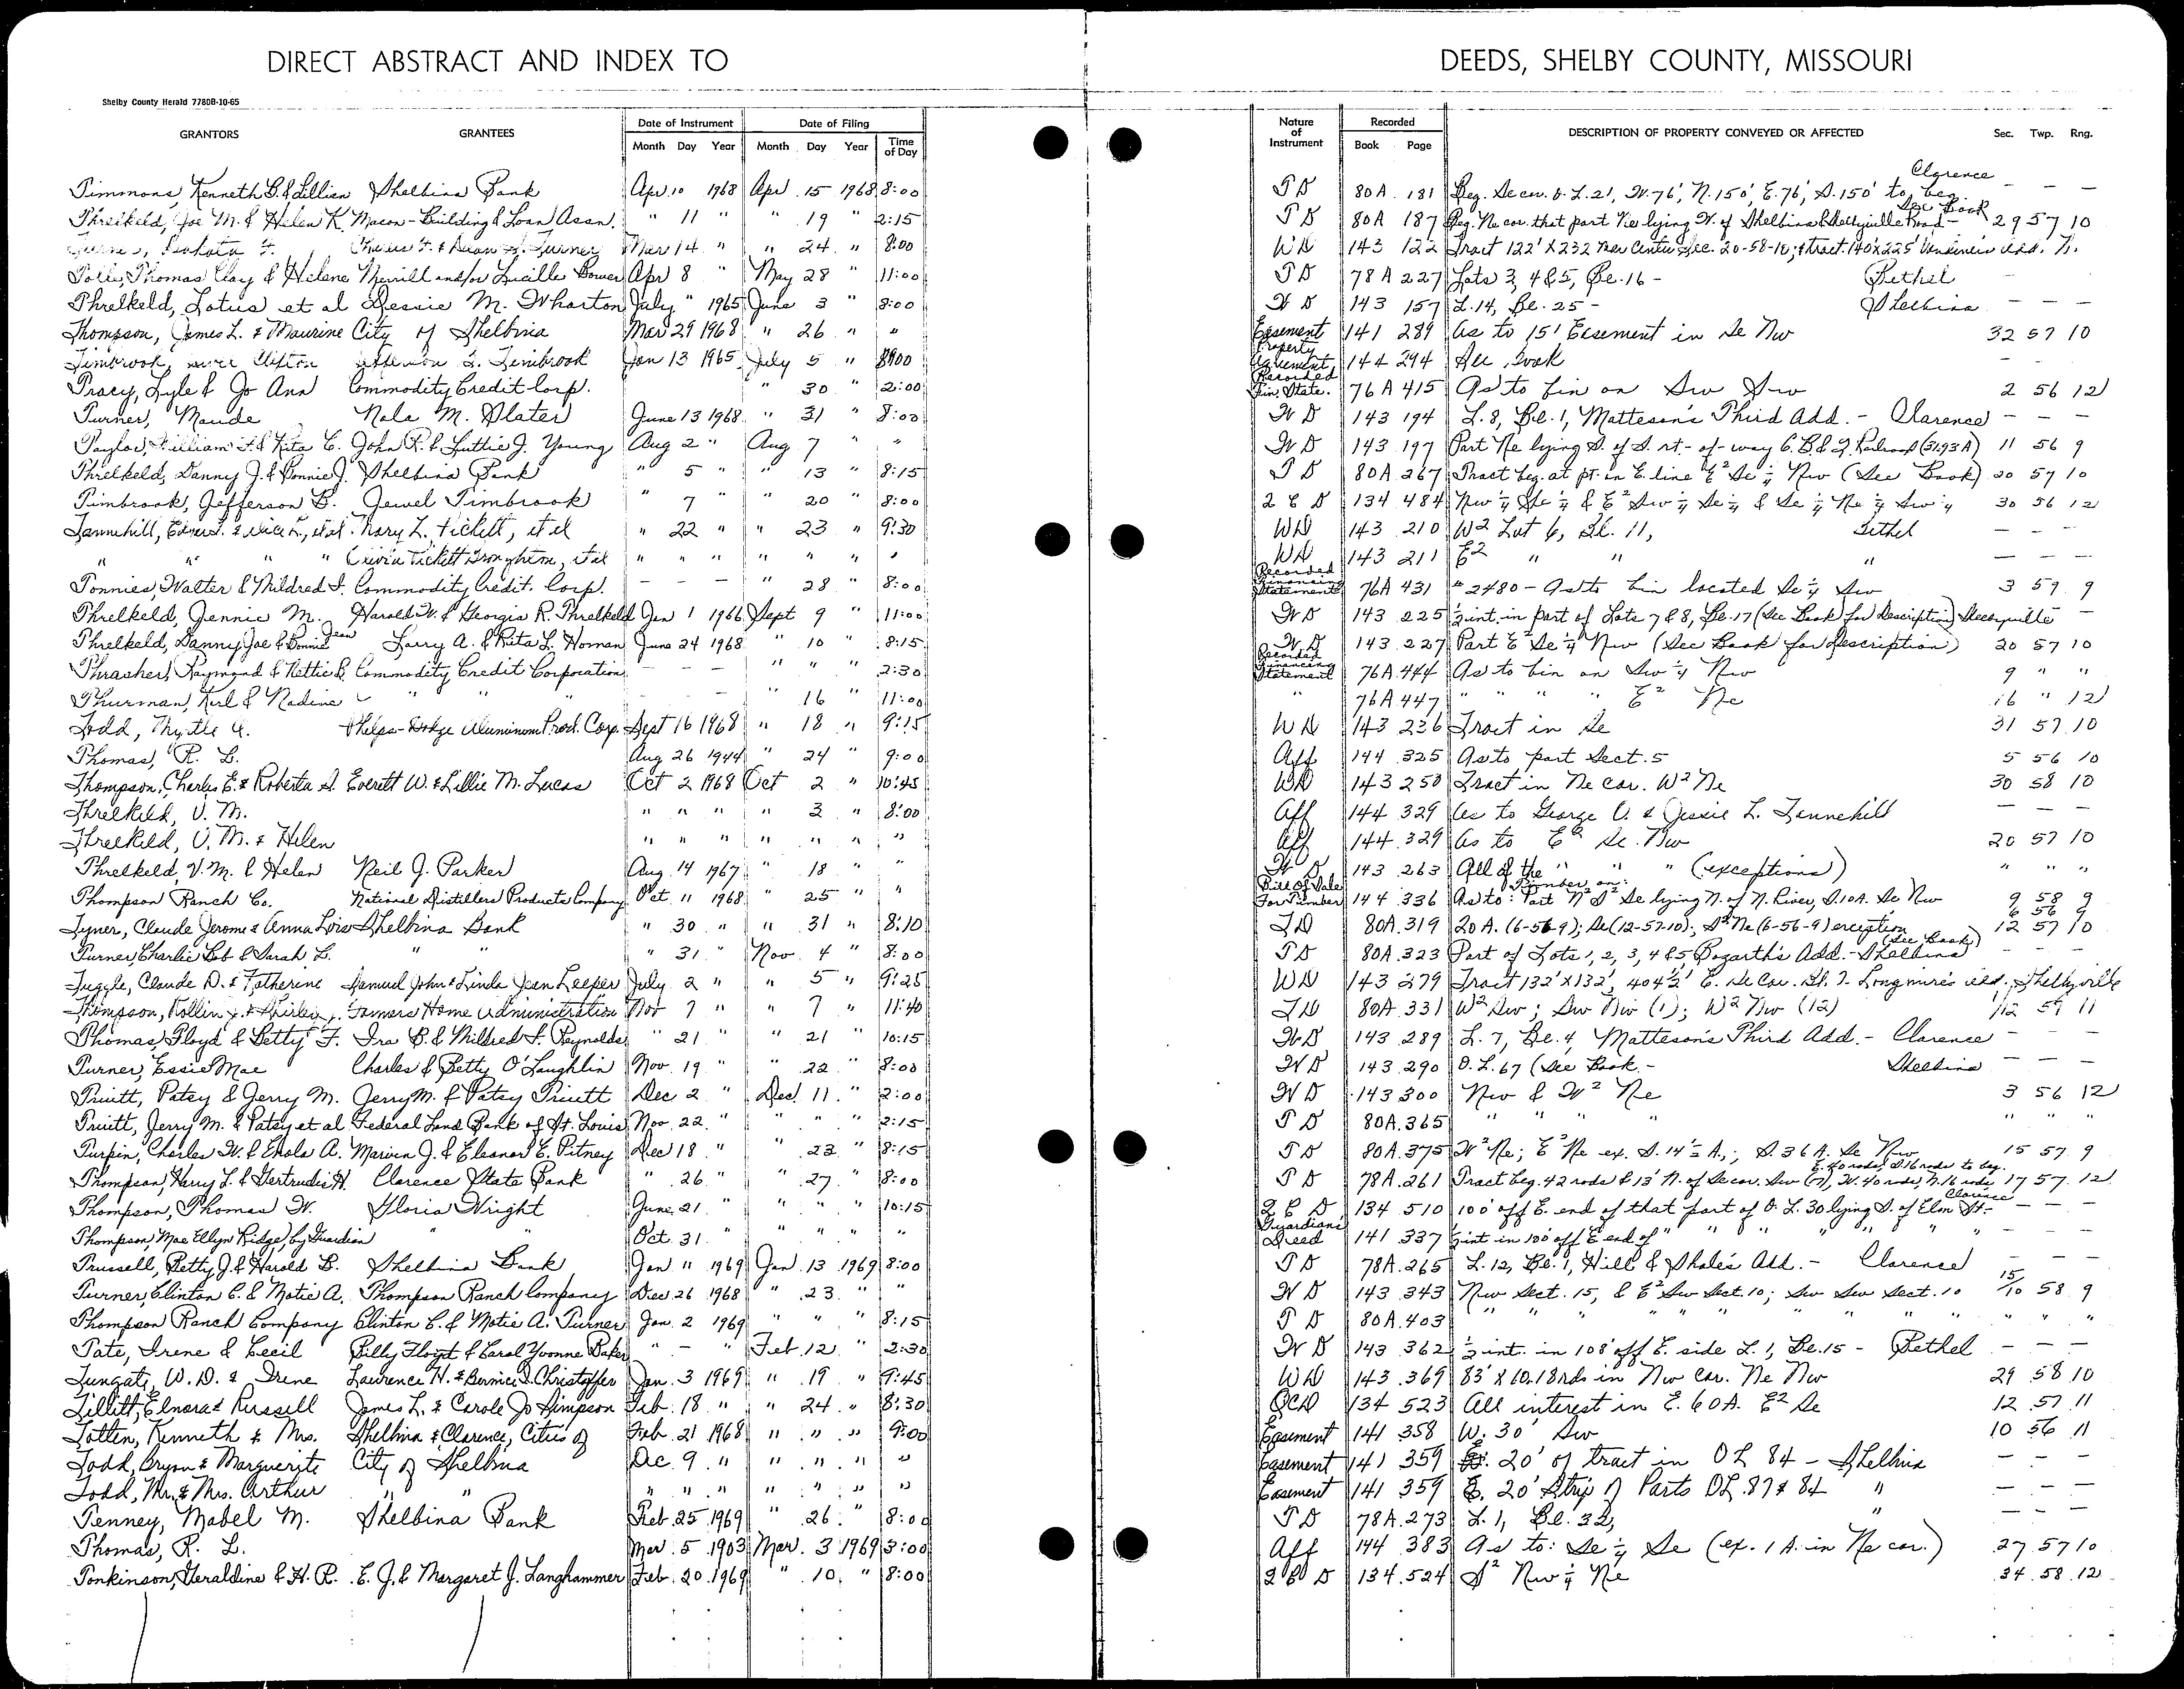 DIRECT ABSTRACT AND INDEX TO DEEDS, SHELBY COUNTY, MISSOURI
Shelby County Herald 7780B-10-65
GRANTORS GRANTEES Date of Instrument Date of Filing Nature of Instrument Recorded DESCRIPTION OF PROPERTY CONVEYED OR AFFECTED Sec. Twp. Rng.
Month Day Year Month Day Year Time of Day Book Page
Clarence
Timmons, Kenneth B. & Lillian Shelbina Bank Apr. 10 1968 Apr. 15 1968 8:00 T D 80A 181 Beg. Se cor. O.L. 21, W. 76', N. 150', E. 76', S. 150' to beg. — — —
See Book
Threlkeld, Joe M. & Helen K. Macon-Building & Loan Assn. " 11 " " 19 " 2:15 T D 80A 187 Beg. Ne cor. that part Ne lying W. of Shelbina & Shelbyville Road- 29 57 10
Turner Mar 14 " " 24 " 8:00 WD 143 122 Tract 122' X 232' Sec. 20-58-10; & tract 140 X 225' Add.
Thomas Clay & Helene Merrill and/or Lucille Bower Apr 8 " May 28 " 11:00 T D 78A 227 Lots 3, 4 & 5, Bl. 16 - Bethel —
Threlkeld, Lotus et al Dessie M. Wharton July " 1965 June 3 " 8:00 W D 143 157 L. 14, Bl. 25 - Shelbina — — —
Thompson, James L. & Maurine City of Shelbina Mar 29 1968 " 26 " " Easement 141 289 As to 15' Easement in Se Nw 32 57 10
Timbrook, Clifton Jefferson B. Timbrook Jan 13 1965 July 5 " 8:00 Property Agreement 144 294 See Book - -
Tracy, Lyle & Jo Ann Commodity Credit Corp. " 30 " 2:00 Recorded Fin. State. 76A 415 As to bin on Sw Sw 2 56 12
Turner, Maude Nola M. Slater June 13 1968 " 31 " 8:00 W D 143 194 L. 8, Bl. 1, Matteson's Third Add. - Clarence — — —
Taylor, William F. & Rita C. John R. & Luttie J. Young Aug 2 " Aug 7 " " W D 143 197 Part Ne lying S. of S. rt-of-way C.B.&Q. Railroad (31.93 A) 11 56 9
Threlkeld, Danny J. & Bonnie J. Shelbina Bank " 5 " " 13 " 8:15 T D 80A 267 Tract beg. at pt. in E. line E² Se ¼ Nw (See Book) 20 57 10
Timbrook, Jefferson B. Jewel Timbrook " 7 " 20 " 8:00 Q C D 134 484 Nw ¼ Se ¼ & E² Sw ¼ Se ¼ & Se ¼ Ne ¼ Sw ¼ 30 56 12
Tannehill, et al. Mary L. Tickett, et al " 22 " " 23 " 9:30 WD 143 210 W² Lot 6, Bl. 11, Bethel — —
" " " Tickett et al " " " " " " " WD 143 211 E² " " " — — —
Tonnies, Walter & Mildred I. Commodity Credit Corp. — — — " 28 " 8:00 Recorded Financing Statement 76A 431 # 2480 - As to bin located Se ¼ Sw 3 59 9
Threlkeld, Jennie M. Harold W. & Georgia R. Threlkeld Jan 1 1966 Sept 9 " 11:00 W D 143 225 ½ int. in part of Lots 7 & 8, Bl. 17 (See Book for Description) —
Threlkeld, Danny Joe & Bonnie Jean Larry A. & Rita L. Homan June 24 1968 " 10 " 8:15 W D 143 227 Part E² Se ¼ Nw (See Book for Description) 20 57 10
Thrasher, Raymond & Nettie B. Commodity Credit Corporation — — — " " " 2:30 Recorded Financing Statement 76A 444 As to bin on Sw ¼ Nw 9 " "
Thurman, Karl & Nadine " " - - " 16 " 11:00 " 76A 447 " " " " E² Ne 16 " 12
Todd, Myrtle A. Phelps-Dodge Aluminum Prod. Corp. Sept 16 1968 " 18 " 9:15 WD 143 236 Tract in Se 31 57 10
Thomas, R. L. Aug 26 1944 " 24 " 9:00 Aff 144 325 As to part Sect. 5 5 56 10
Thompson, Charles E. & Roberta A. Everett W. & Lillie M. Lucas Oct 2 1968 Oct 2 " 10:45 WD 143 250 Tract in Ne cor. W² Ne 30 58 10
Threlkeld, V. M. " " " " 3 " 8:00 Aff 144 329 As to George V. & Jessie L. Tannehill — — —
Threlkeld, V. M. & Helen " " " " " " " Aff 144 329 As to E² Se Nw 20 57 10
Threlkeld, V. M. & Helen Neil J. Parker Aug. 14 1967 " 18 " " W D 143 263 All of the " " " (exceptions) " " "
Thompson Ranch Co. National Distillers Products Company Oct. 11 1968 " 25 " " Bill of Sale For Timber 144 336 As to: Timber on: Part N² S² Se lying N. of N. River, S. 10 A. Se Nw 9 58 9
Tyner, Claude Jerome & Anna Lois Shelbina Bank " 30 " " 31 " 8:10 TD 80A 319 20 A. (6-56-9); Se (12-57-10); S² Ne (6-56-9) exception 6 56 9 12 57 10
(See Book)
Turner, Charlie Bob & Sarah L. " " " 31 " Nov. 4 " 8:00 T D 80A 323 Part of Lots 1, 2, 3, 4 & 5 Bogarth's Add. - Shelbina — — —
Tuggle, Claude D. & Katherine Samuel John & Linda Jean Leeper July 2 " " 5 " 9:25 WD 143 279 Tract 132' X 132', 404½' E. Se Cor. Bl. 2 Longmire's Add. - Shelbyville
Thompson, Rollin J. & Shirley J. Farmers Home Administration Nov 7 " " 7 " 11:40 TD 80A 331 W² Sw; Sw Nw (1); W² Nw (12) 1/12 59 11
Thomas, Floyd & Betty F. Ira B. & Mildred I. Reynolds " 21 " " 21 " 10:15 W D 143 289 L. 7, Bl. 4, Matteson's Third Add. - Clarence — — —
Turner, Essie Mae Charles & Betty O'Laughlin Nov. 19 " " 22 " 8:00 W D 143 290 O. L. 67 (See Book - Shelbina — — —
Truitt, Patsy & Jerry M. Jerry M. & Patsy Truitt Dec 2 " Dec. 11 " 2:00 W D 143 300 Nw & W² Ne 3 56 12
Truitt, Jerry M. & Patsy et al Federal Land Bank of St. Louis Nov. 22 " " " " 2:15 T D 80A 365 " " " " " " "
Turpin, Charles W. & Enola A. Marvin J. & Eleanor E. Pitney Dec 18 " " 23 " 8:15 T D 80A 375 W² Ne; E² Ne ex. S. 14½ A.; S. 36 A. Se Nw 15 57 9
E. 40 rods, S. 16 rods to beg.
Thompson, Harry L. & Gertrude H. Clarence State Bank " 26 " " 27 " 8:00 T D 78A 261 Tract beg. 42 rods & 13' N. of Se cor. Sw (17), W. 40 rods, N. 16 rods, 17 57 12
Clarence
Thompson, Thomas W. Gloria Wright June 21 " " " " 10:15 Q C D 134 510 100' off E. end of that part of O. L. 30 lying S. of Elm St. - — — —
Thompson, Mae Ellyn Ridge, by Guardian " " Oct. 31 " " " " " Guardians Deed 141 337 ½ int in 100' off E end of " " " " " " — — —
Trussell, Betty J. & Harold B. Shelbina Bank Jan 11 1969 Jan. 13 1969 8:00 T D 78A 265 L. 12, Bl. 1, Hill & Shale's Add. - Clarence — — —
Turner, Clinton C. & Motie A. Thompson Ranch Company Dec 26 1968 " 23 " " W D 143 343 Nw Sect. 15, & E² Sw Sect. 10; Sw Sw Sect. 10 15/10 58 9
Thompson Ranch Company Clinton C. & Motie A. Turner Jan. 2 1969 " " " 8:15 T D 80A 403 " " " " " " " " " " "
Tate, Irene & Cecil Billy Floyd & Carol Yvonne Baker " - " Feb. 12 " 2:30 W D 143 362 ½ int. in 108' off E. side L. 1, Bl. 15 - Bethel — — —
Tungate, W. D. & Irene Lawrence H. & Bernice I. Christoffer Jan. 3 1969 " 19 " 9:45 WD 143 369 83' X 60.18 rds in Nw Cor. Ne Nw 29 58 10
Tillitt, Elnora & Russell James L. & Carole Jo Simpson Feb. 18 " " 24 " 8:30 QCD 134 523 All interest in E. 60 A. E² Se 12 57 11
Totten, Kenneth & Mrs. Shelbina & Clarence, Cities of Feb. 21 1968 " " " 9:00 Easement 141 358 W. 30' Sw 10 56 11
Todd, Bryon & Marguerite City of Shelbina Dec. 9 " " " " " Easement 141 359 E. 20' of tract in OL 84 - Shelbina — — —
Todd, Mr. & Mrs. Arthur " " " " " " " " " Easement 141 359 E. 20' Strip of Parts OL 87 & 84 " — — —
Tenney, Mabel M. Shelbina Bank Feb. 25 1969 " 26 " 8:00 T D 78A 273 L. 1, Bl. 32, " — — —
Thomas, R. L. Mar. 5 1903 Mar. 3 1969 3:00 Aff 144 383 As to: Se ¼ Se (ex. 1 A. in Ne cor.) 27 57 10
Tonkinson, Geraldine & H. R. E. J. & Margaret J. Langhammer Feb. 20 1969 " 10 " 8:00 Q C D 134 524 S² Nw ¼ Ne 34 58 12